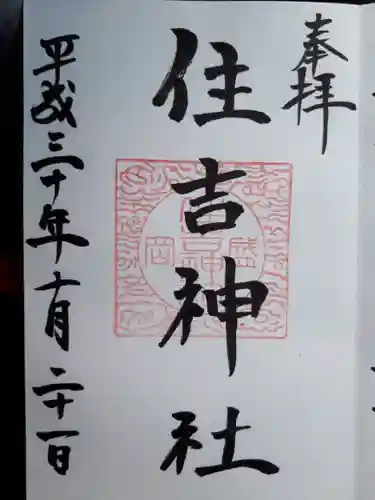 奉拝
住吉神社
盛岡
平成三十年十月二十一日